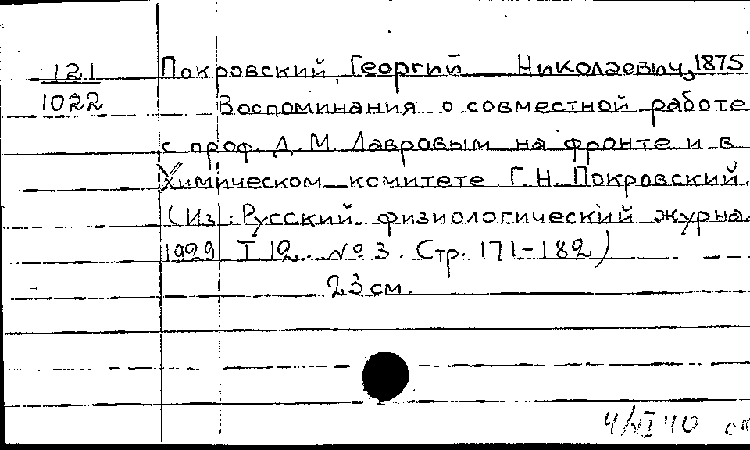 121
1022
Покровский, Георгий Николаевич, 1875
Воспоминания о совместной работе
с проф. Д. М. Лавровым на фронте и в
Химическом комитете Г. Н. Покровский.
(Из: Русский физиологический журна
1929 Т 12. № 3. Стр. 171-182)
23 см.
4/VI 40